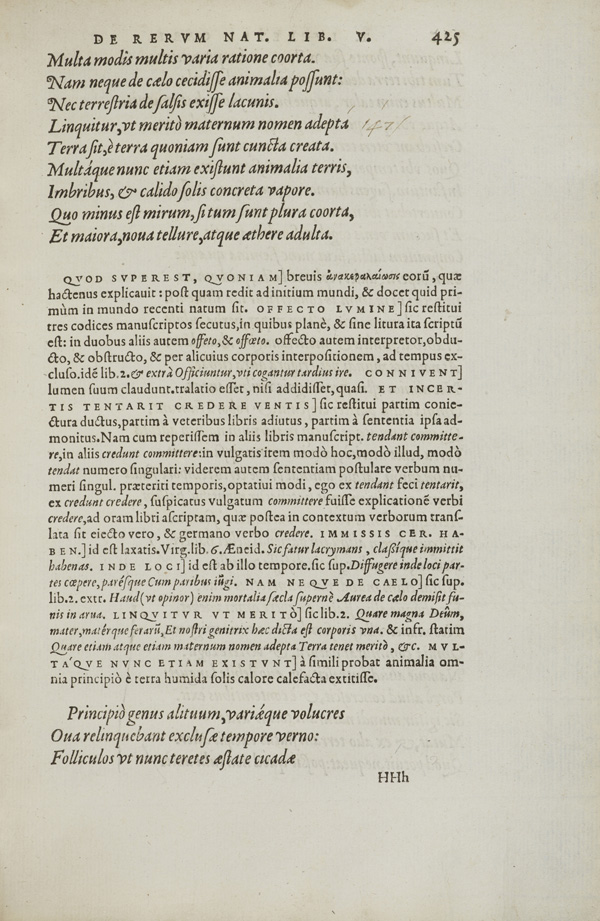 DE RERVM NAT. LIB. V. 425
Multa modis multis varia ratione coorta.
Nam neque de cælo cecidiſſe animalia poſſunt:
Nec terreſtria de ſalſis exiſſe lacunis.
Linquitur, vt meritò maternum nomen adepta
Terra ſit, è terra quoniam ſunt cuncta creata.
Multáque nunc etiam exiſtunt animalia terris,
Imbribus, & calido ſolis concreta vapore.
Quo minus eſt mirum, ſi tum ſunt plura coorta,
Et maiora, noua tellure, atque æthere adulta.
QVOD SVPEREST, QVONIAM] breuis ἀνακεφαλαίωσις eorū, quæ
hactenus explicauit: poſt quam redit ad initium mundi, & docet quid pri-
mùm in mundo recenti natum ſit. OFFECTO LVMINE] ſic reſtitui
tres codices manuſcriptos ſecutus, in quibus planè, & ſine litura ita ſcriptū
eſt: in duobus aliis autem offeto, & offœto. offecto autem interpretor, obdu-
cto, & obſtructo, & per alicuius corporis interpoſitionem, ad tempus ex-
cluſo. idē lib. 2. & extrà Officiuntur, vti cogantur tardius ire. CONNIVENT]
lumen ſuum claudunt. tralatio eſſet, niſi addidiſſet, quaſi. ET INCER-
TIS TENTARIT CREDERE VENTIS] ſic reſtitui partim conie-
ctura ductus, partim à veteribus libris adiutus, partim à ſententia ipſa ad-
monitus. Nam cum reperiſſem in aliis libris manuſcript. tendant committe-
re, in aliis credunt committere: in vulgatis item modò hoc, modò illud, modò
tendat numero ſingulari: viderem autem ſententiam poſtulare verbum nu-
meri ſingul. præteriti temporis, optatiui modi, ego ex tendant feci tentarit,
ex credunt credere, ſuſpicatus vulgatum committere fuiſſe explicationē verbi
credere, ad oram libri aſcriptam, quæ poſtea in contextum verborum tranſ-
lata ſit eiecto vero, & germano verbo credere. IMMISSIS CER. HA-
BEN.] id eſt laxatis. Virg. lib. 6. Æneid. Sic fatur lacrymans, claßíque immittit
habenas. INDE LOCI] id eſt ab illo tempore. ſic ſup. Diffugere inde loci par-
tes cœpere, paréſque Cum paribus iūgi. NAM NEQVE DE CAELO] ſic ſup.
lib. 2. extr. Haud (vt opinor) enim mortalia ſæcla ſupernè Aurea de cælo demiſit fu-
nis in arua. LINQVITVR VT MERITÒ] ſic lib. 2. Quare magna Deûm,
mater, matérque ferarū, Et noſtri genitrix hæc dicta eſt corporis vna. & infr. ſtatim
Quare etiam atque etiam maternum nomen adepta Terra tenet meritò, &c. MVL-
TA'QVE NVNC ETIAM EXISTVNT] à ſimili probat animalia om-
nia principiò è terra humida ſolis calore calefacta extitiſſe.
Principiò genus alituum, variǽque volucres
Oua relinquebant excluſæ tempore verno:
Folliculos vt nunc teretes æſtate cicadæ
HHh